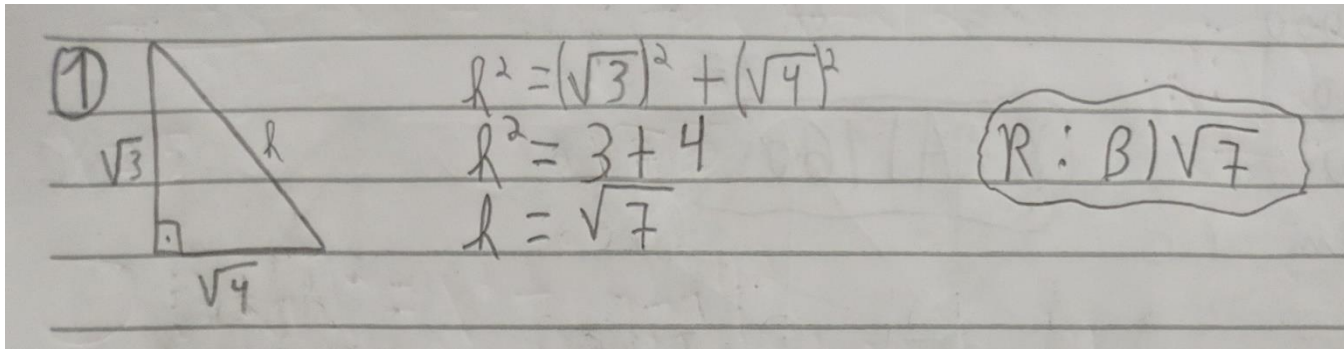 1
√3
h
√4
h² = (√3)² + (√4)²
h² = 3 + 4
h = √7
R: B) √7